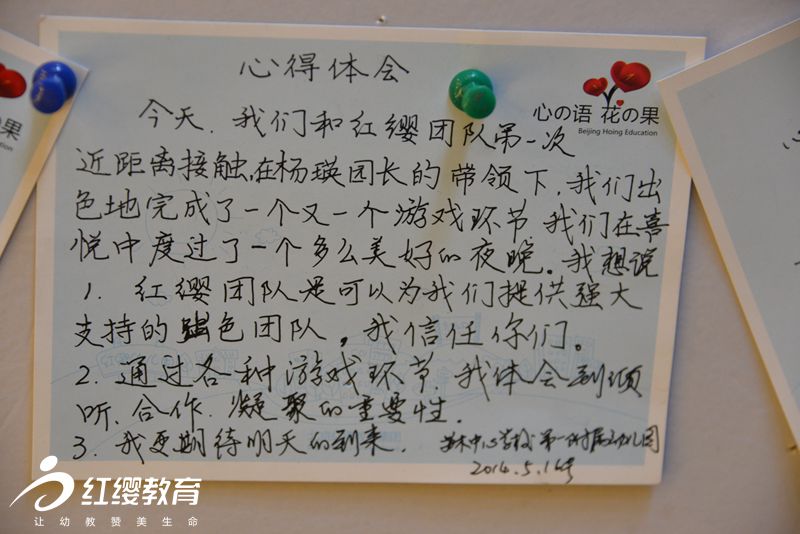 心得体会
心の语 花の果
Beijing Hoing Education
今天,我们和红缨团队第一次
近距离接触,在杨瑛园长的带领下,我们出
色地完成了一个又一个游戏环节,我们在喜
悦中度过了一个多么美好的夜晚。我想说
1. 红缨团队是可以为我们提供强大
支持的出色团队,我信任你们。
2. 通过各种游戏环节,我体会到倾
听、合作、凝聚的重要性.
3. 我更期待明天的到来.
中心学校第一附属幼儿园
2014.5.16号
果
Education
红缨教育
让幼教赞美生命